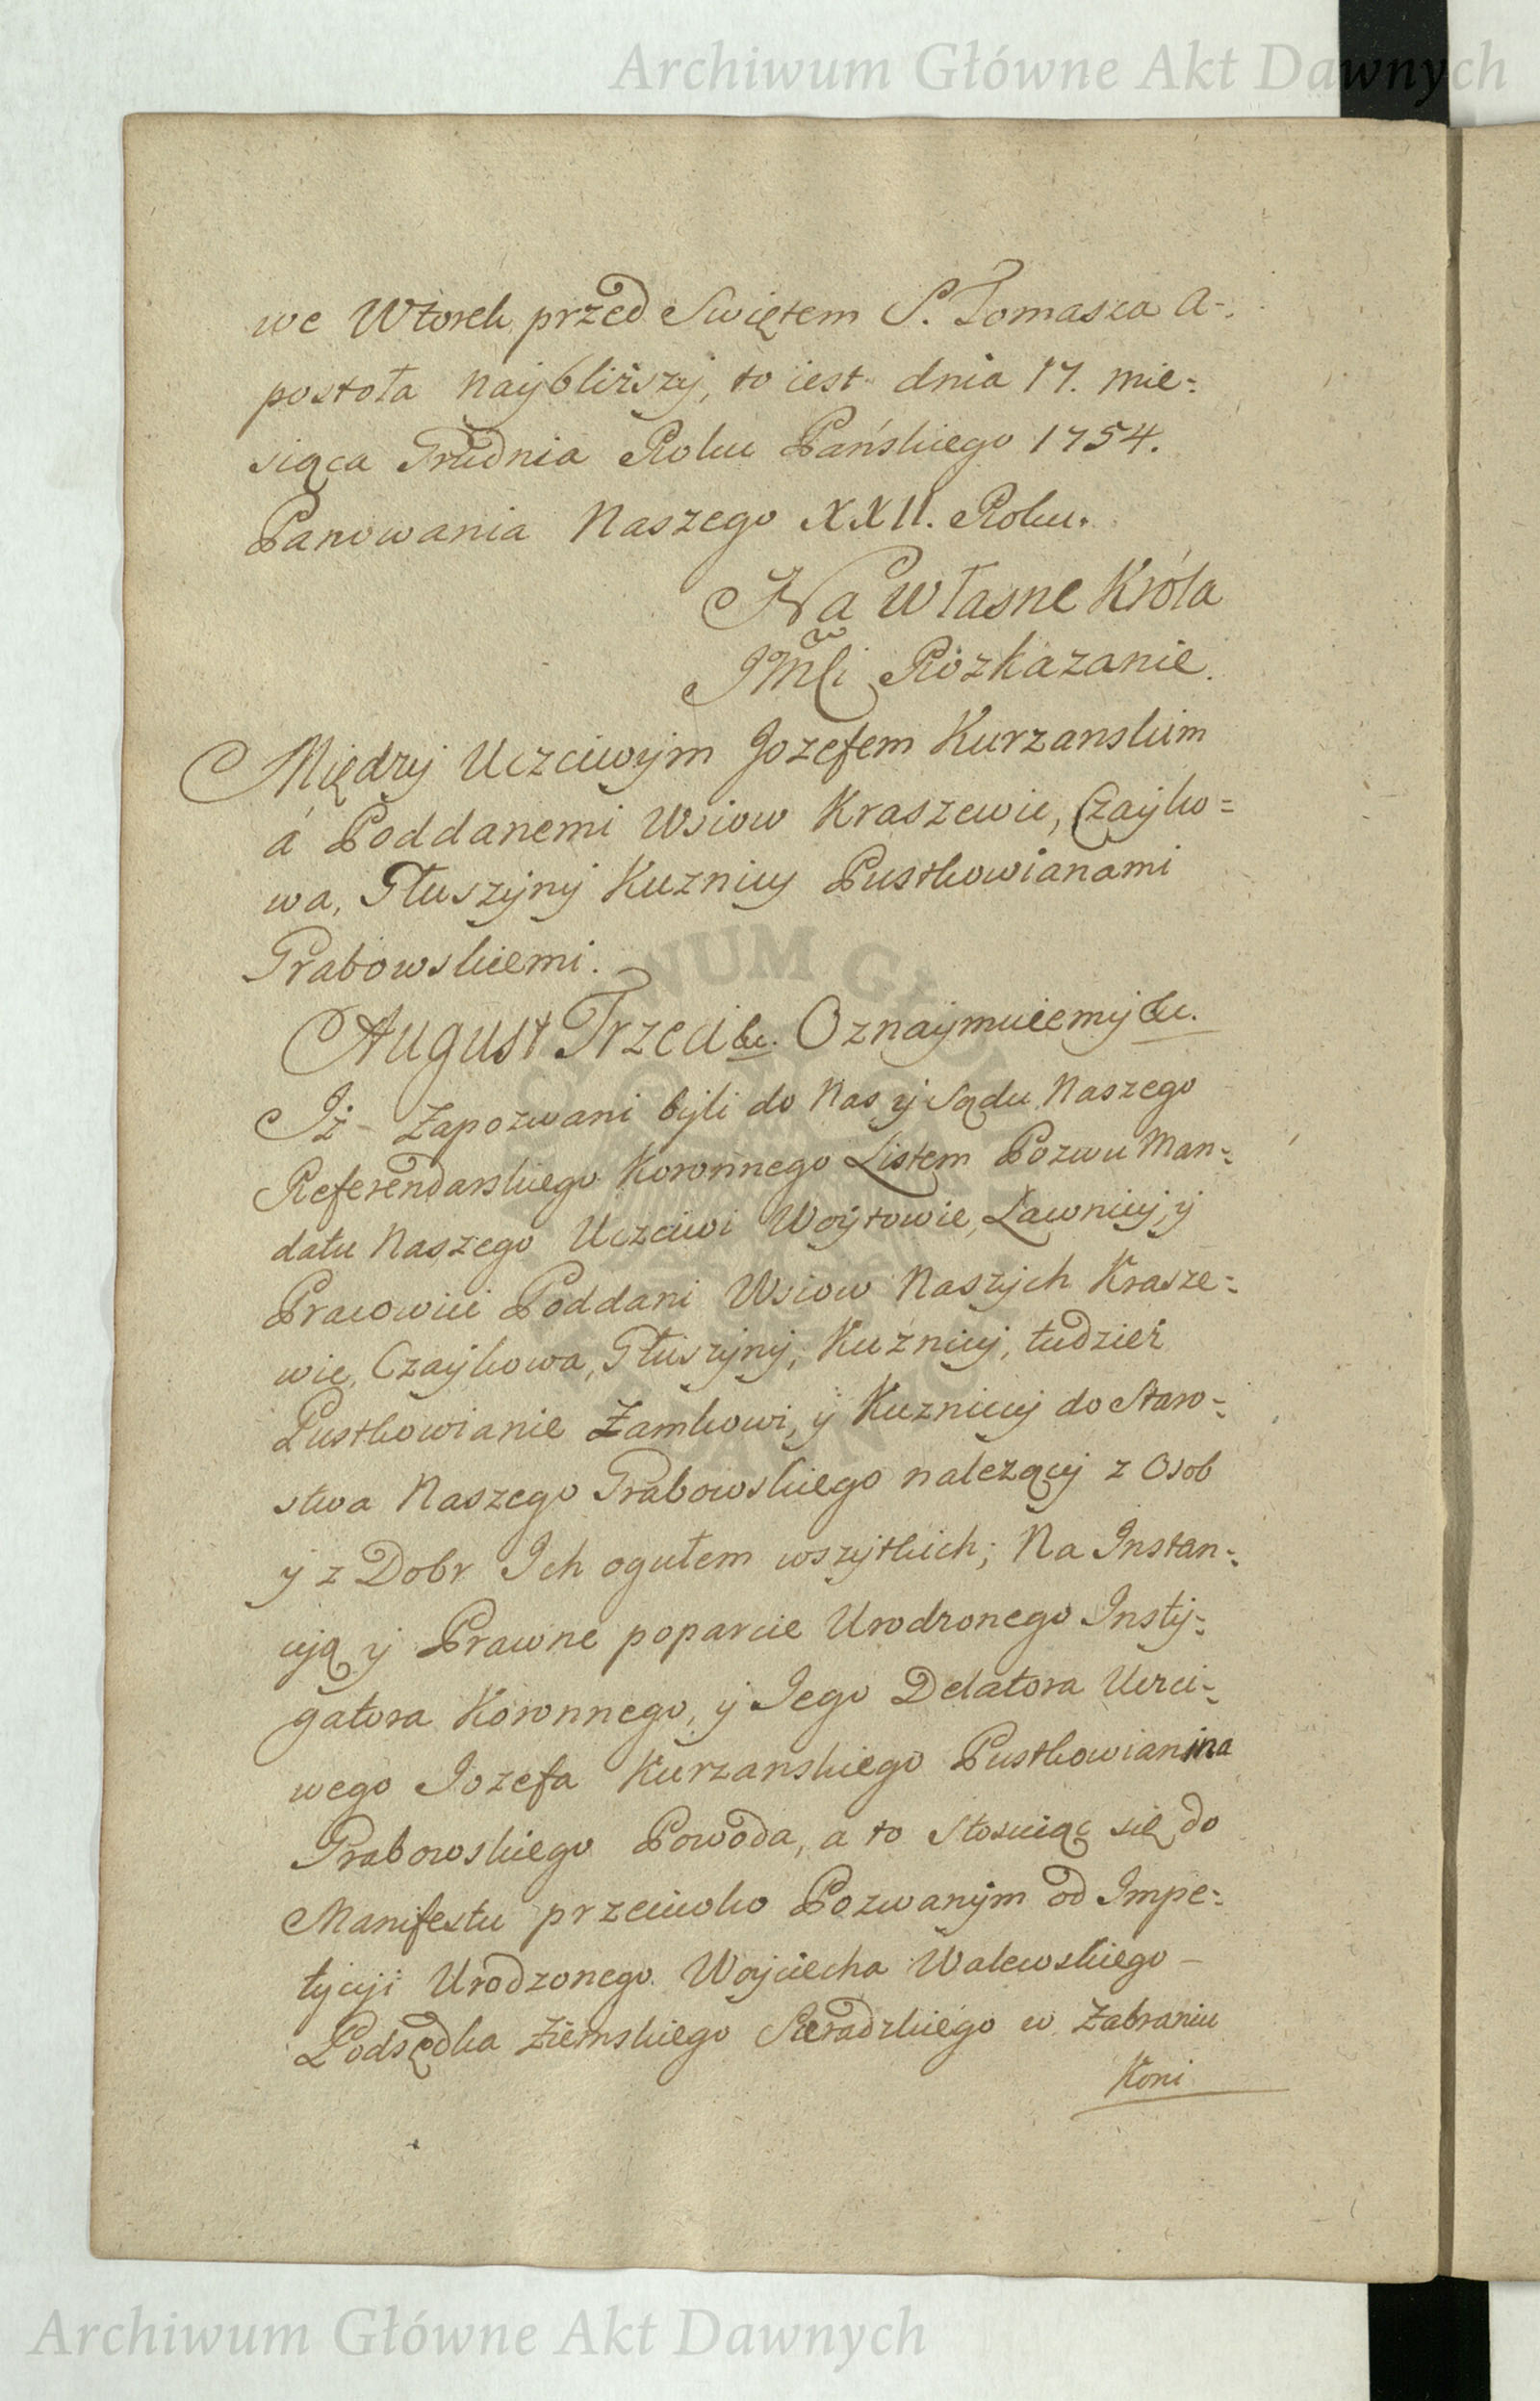 Archiwum Główne Akt Dawnych
we Wtorek przed Swiętem S. Tomasza A-
postoła Nayblizszy, to iest dnia 17. mie=
siąca Grudnia Roku Pańskiego 1754.
Panowania Naszego XXII. Roku.
Na Własne Króla
JMći Rozkazanie.
Między Uczciwym Jozefem Kurzanskim
á Poddanemi Wsiow Kraszewic, Czayko=
wa, Głuszyny Kuznicy Pustkowianami
Grabowskiemi.
August Trzeci &c. Oznaymuiemy &c.
Iż Zapozwani byli do Nas y Sądu Naszego
Referendarskiego Koronnego Listem Pozwu Man=
datu Naszego Uczciwi Woytowie, Ławnicy, y
Pracowici Poddani Wsiow Naszych Krasze=
wic, Czaykowa, Głuszyny, Kuźnicy, tudzież
Pustkowianie Zamkowi, y Kuznicy do Staro=
stwa Naszego Grabowskiego nalezący z Osob
y z Dobr Ich ogułem wszytkich; Na Instan=
cyią y Prawne poparcie Urodzonego Insty=
gatora Koronnego, y Jego Delatora Uczci=
wego Jozefa Kurzanskiego Pustkowianina
Grabowskiego Powoda, a to Stosuiąc się do
Manifestu przeciwko Pozwanym od Impe=
tycyi Urodzonego Woyciecha Walewskiego –
Podsędka Ziemskiego Sieradzkiego w Zabraniu
Koni
Archiwum Główne Akt Dawnych